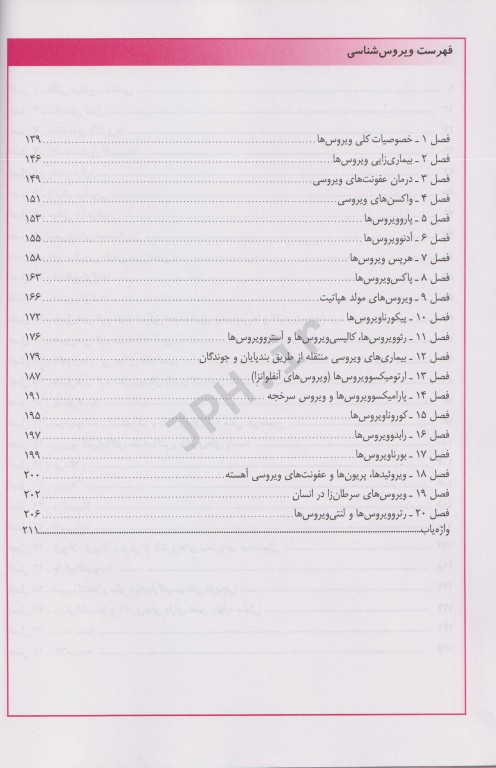 فهرست ویروس‌شناسی
فصل ۱ ـ خصوصیات کلی ویروس‌ها ۱۳۹
فصل ۲ ـ بیماری‌زایی ویروس‌ها ۱۴۶
فصل ۳ ـ درمان عفونت‌های ویروسی ۱۴۹
فصل ۴ ـ واکسن‌های ویروسی ۱۵۱
فصل ۵ ـ پاروویروس‌ها ۱۵۳
فصل ۶ ـ آدنوویروس‌ها ۱۵۵
فصل ۷ ـ هرپس ویروس‌ها ۱۵۸
فصل ۸ ـ پاکس‌ویروس‌ها ۱۶۳
فصل ۹ ـ ویروس‌های مولد هپاتیت ۱۶۶
فصل ۱۰ ـ پیکورناویروس‌ها ۱۷۲
فصل ۱۱ ـ رئوویروس‌ها، کالیسی‌ویروس‌ها و آستروویروس‌ها ۱۷۶
فصل ۱۲ ـ بیماری‌های ویروسی منتقله از طریق بندپایان و جوندگان ۱۷۹
فصل ۱۳ ـ ارتومیکسوویروس‌ها (ویروس‌های آنفلوانزا) ۱۸۷
فصل ۱۴ ـ پارامیکسوویروس‌ها و ویروس سرخجه ۱۹۱
فصل ۱۵ ـ کوروناویروس‌ها ۱۹۵
فصل ۱۶ ـ رابدوویروس‌ها ۱۹۷
فصل ۱۷ ـ بورناویروس‌ها ۱۹۹
فصل ۱۸ ـ ویروئیدها، پریون‌ها و عفونت‌های ویروسی آهسته ۲۰۰
فصل ۱۹ ـ ویروس‌های سرطان‌زا در انسان ۲۰۲
فصل ۲۰ ـ رتروویروس‌ها و لنتی‌ویروس‌ها ۲۰۶
واژه‌یاب ۲۱۱
JPH.ir